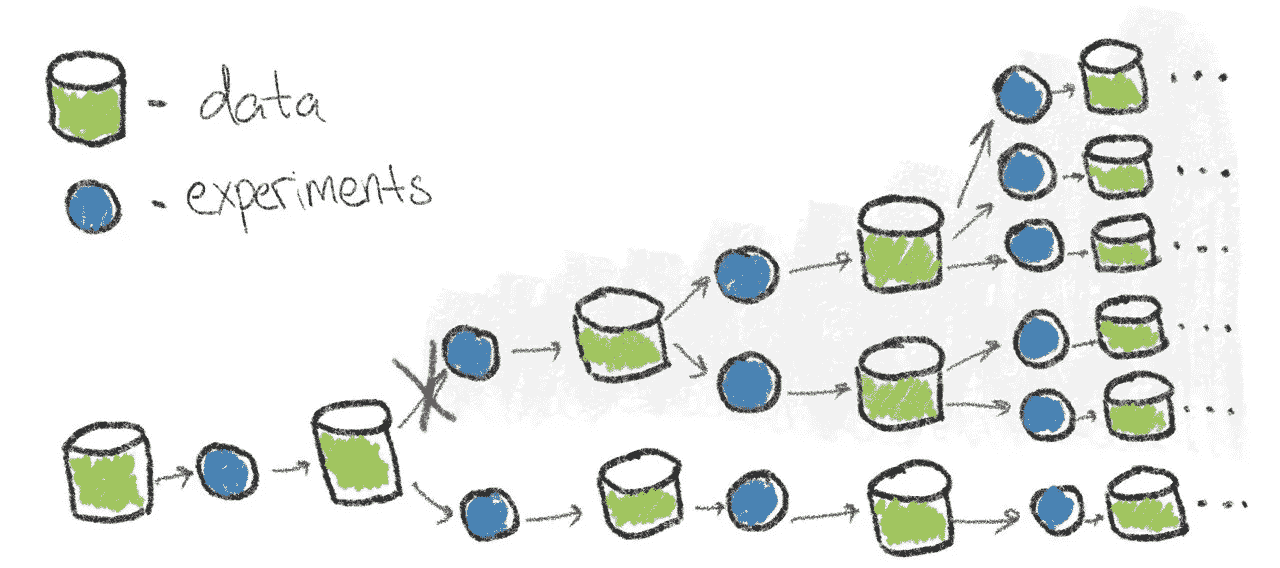 - data
- experiments